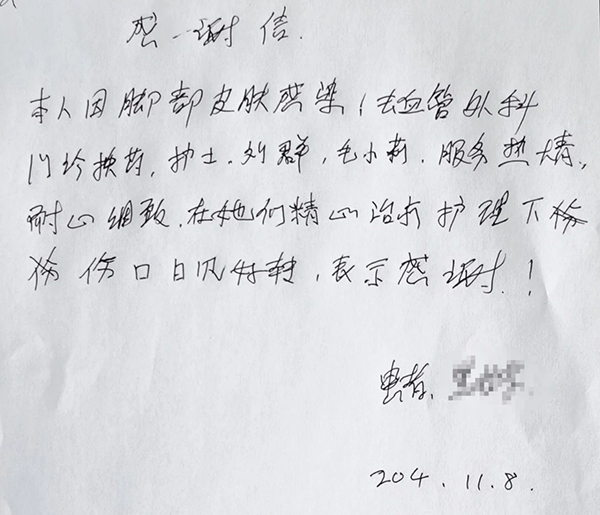 感谢信.
本人因脚部皮肤感染,去血管外科
门诊换药,护士.刘群,毛小莉.服务热情,
耐心细致.在她们精心治疗护理下
伤口日见好转,表示感谢.!
患者.
204.11.8.